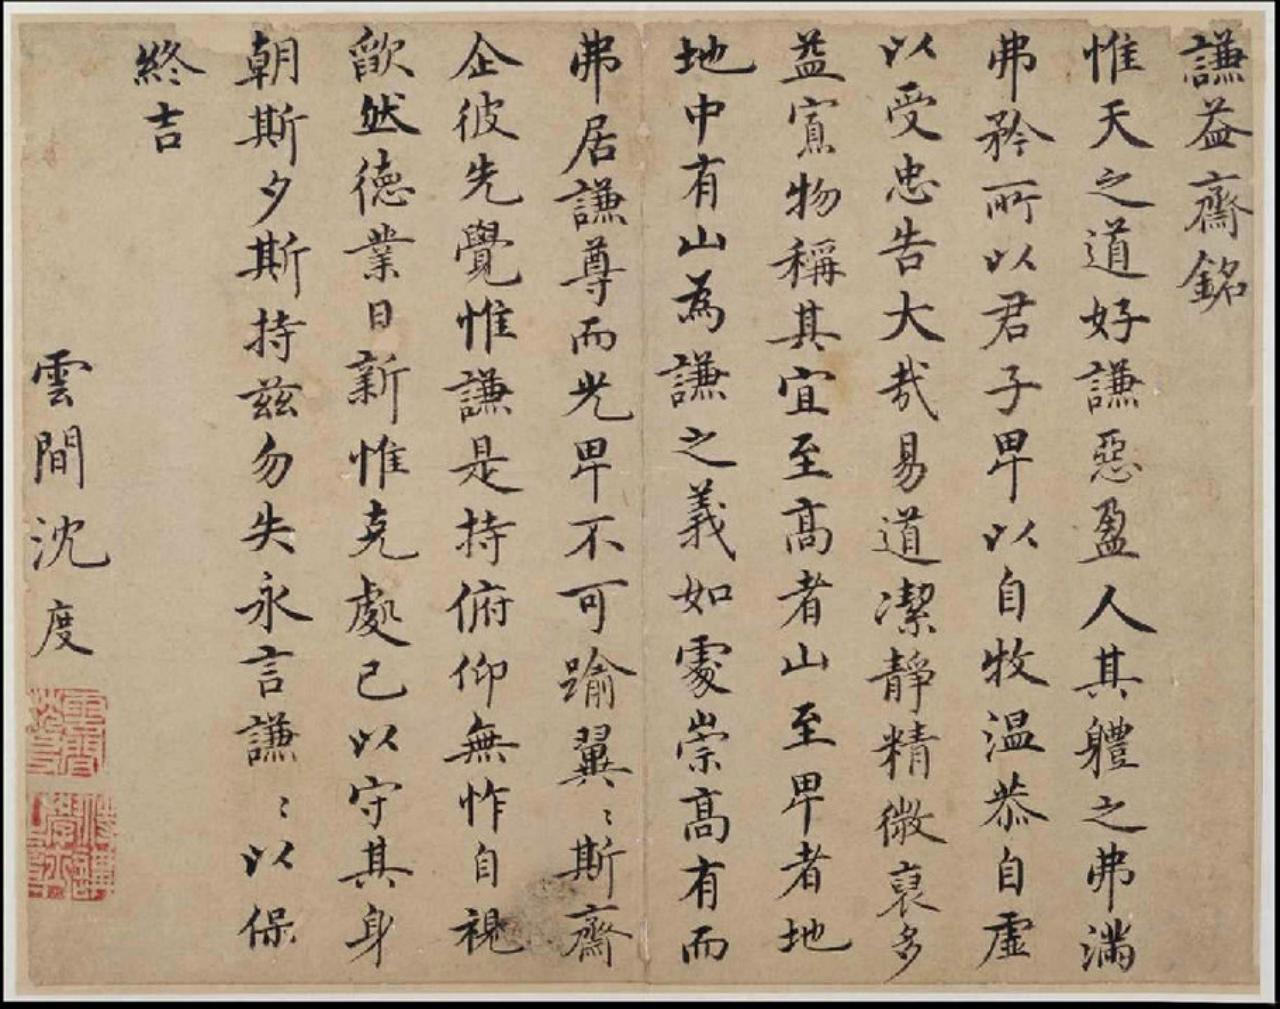 謙益齋銘
惟天之道好謙惡盈人其軆之弗滿
弗矜所以君子卑以自牧温恭自虛
以受忠告大哉易道潔靜精微裒多
益寡物稱其宜至高者山至卑者地
地中有山為謙之義如處崇高有而
弗居謙尊而光卑不可踰翼〻斯齋
企彼先覺惟謙是持俯仰無怍自視
歛然德業日新惟克處己以守其身
朝斯夕斯持兹勿失永言謙〻以保
終吉
雲間沈度